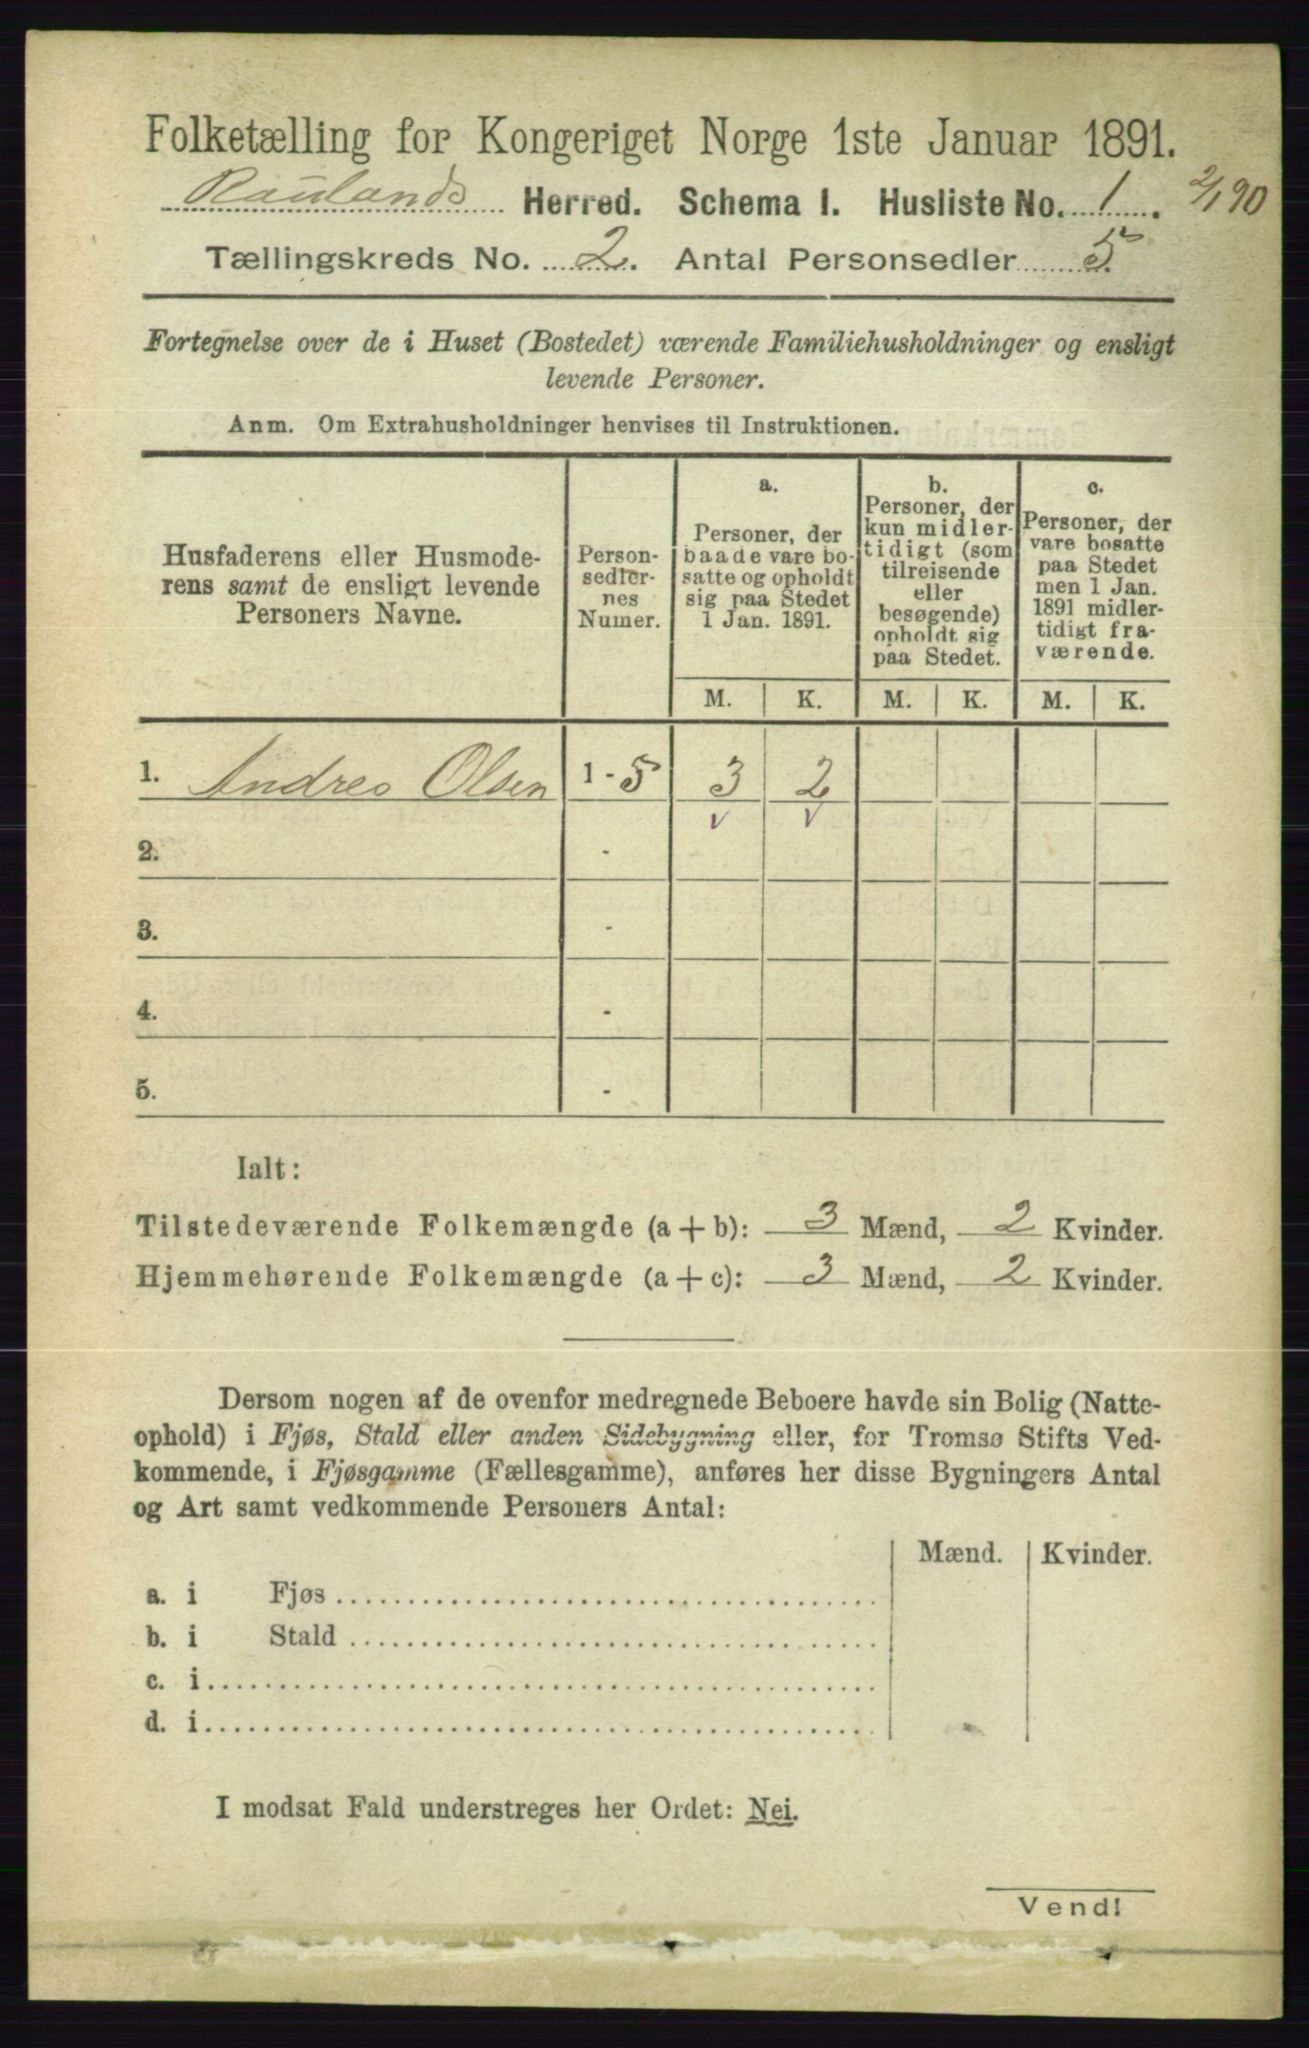 Folketælling for Kongeriget Norge 1ste Januar 1891.
Raulands Herred. Schema I. Husliste No. 1. 2/190
Tællingskreds No. 2. Antal Personsedler 5.
Fortegnelse over de i Huset (Bostedet) værende Familiehusholdninger og ensligt
levende Personer.
Anm. Om Extrahusholdninger henvises til Instruktionen.
Husfaderens eller Husmode-
rens samt de ensligt levende
Personers Navne.
Person-
sedler-
nes
Numer.
a.
Personer, der
baade vare bo-
satte og opholdt
sig paa Stedet
1 Jan. 1891.
b.
Personer, der
kun midler-
tidigt (som
tilreisende
eller
besøgende)
opholdt sig
paa Stedet.
c.
Personer, der
vare bosatte
paa Stedet
men 1 Jan.
1891 midler-
tidigt fra-
værende.
M. K. M. K. M. K.
1. Andres Olsen 1 - 5 3 2
v v
2. -
3. -
4. -
5. -
Ialt:
Tilstedeværende Folkemængde (a + b): 3 Mænd, 2 Kvinder.
Hjemmehørende Folkemængde (a + c): 3 Mænd, 2 Kvinder.
Dersom nogen af de ovenfor medregnede Beboere havde sin Bolig (Natte-
ophold) i Fjøs, Stald eller anden Sidebygning eller, for Tromsø Stifts Ved-
kommende, i Fjøsgamme (Fællesgamme), anføres her disse Bygningers Antal
og Art samt vedkommende Personers Antal:
Mænd. Kvinder.
a. i Fjøs
b. i Stald
c. i
d. i
I modsat Fald understreges her Ordet: Nei.
Vend!